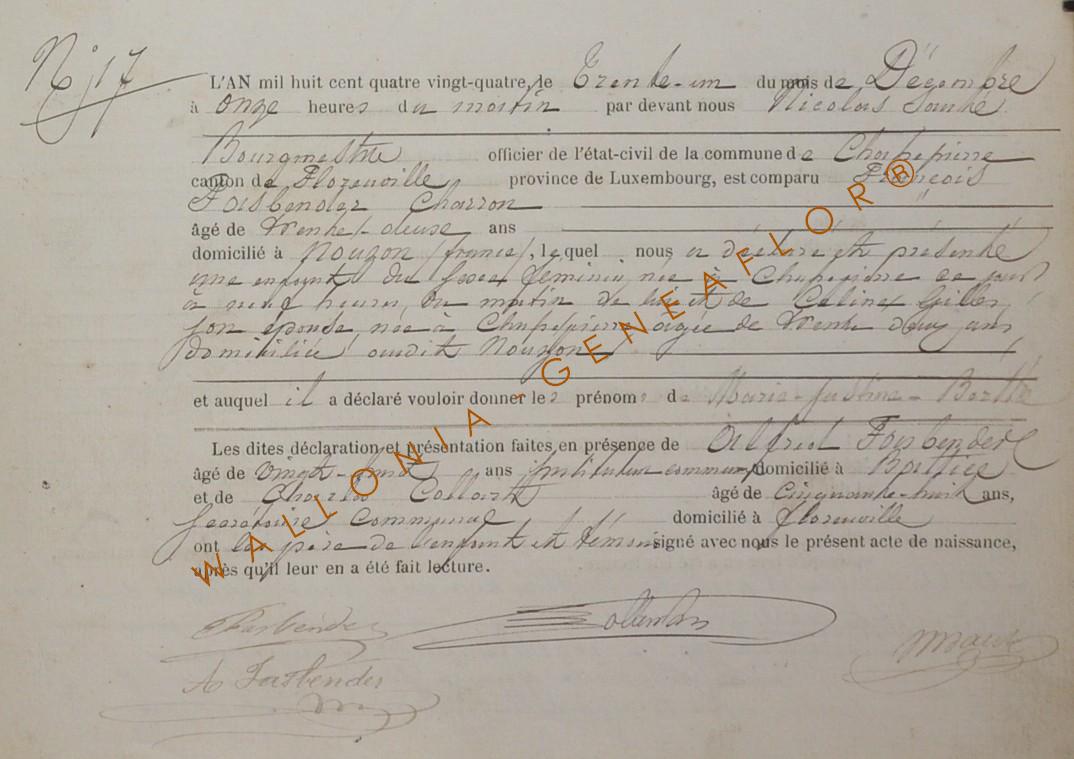 N° 17
L'AN mil huit cent quatre vingt-quatre, le Trente-un du mois de Décembre
à onze heures du matin par devant nous Nicolas
Bourgmestre officier de l'état-civil de la commune de Chassepierre
canton de Florenville province de Luxembourg, est comparu François
Fasbender Charron
âgé de trente-deux ans
domicilié à Nouzon (france), lequel nous a déclaré et présenté
une enfant du sexe féminin née à Chassepierre ce jour
à neuf heures du matin de lui et de Celine Gilles
son épouse, née à Chassepierre âgée de trente deux ans
domiciliée audit Nouzon
et auquel il a déclaré vouloir donner les prénoms de Marie-Justine-Berthe
Les dites déclaration et présentation faites en présence de Alfred Fasbender
âgé de vingt- ans instituteur communal domicilié à
et de Charles Collart âgé de cinquante-huit ans,
Secrétaire Communal domicilié à florenville
ont les père de l'enfant et témoins signé avec nous le présent acte de naissance,
après qu'il leur en a été fait lecture.
Fasbender
A Fasbender
WALLONIA-GENEAFLOR®